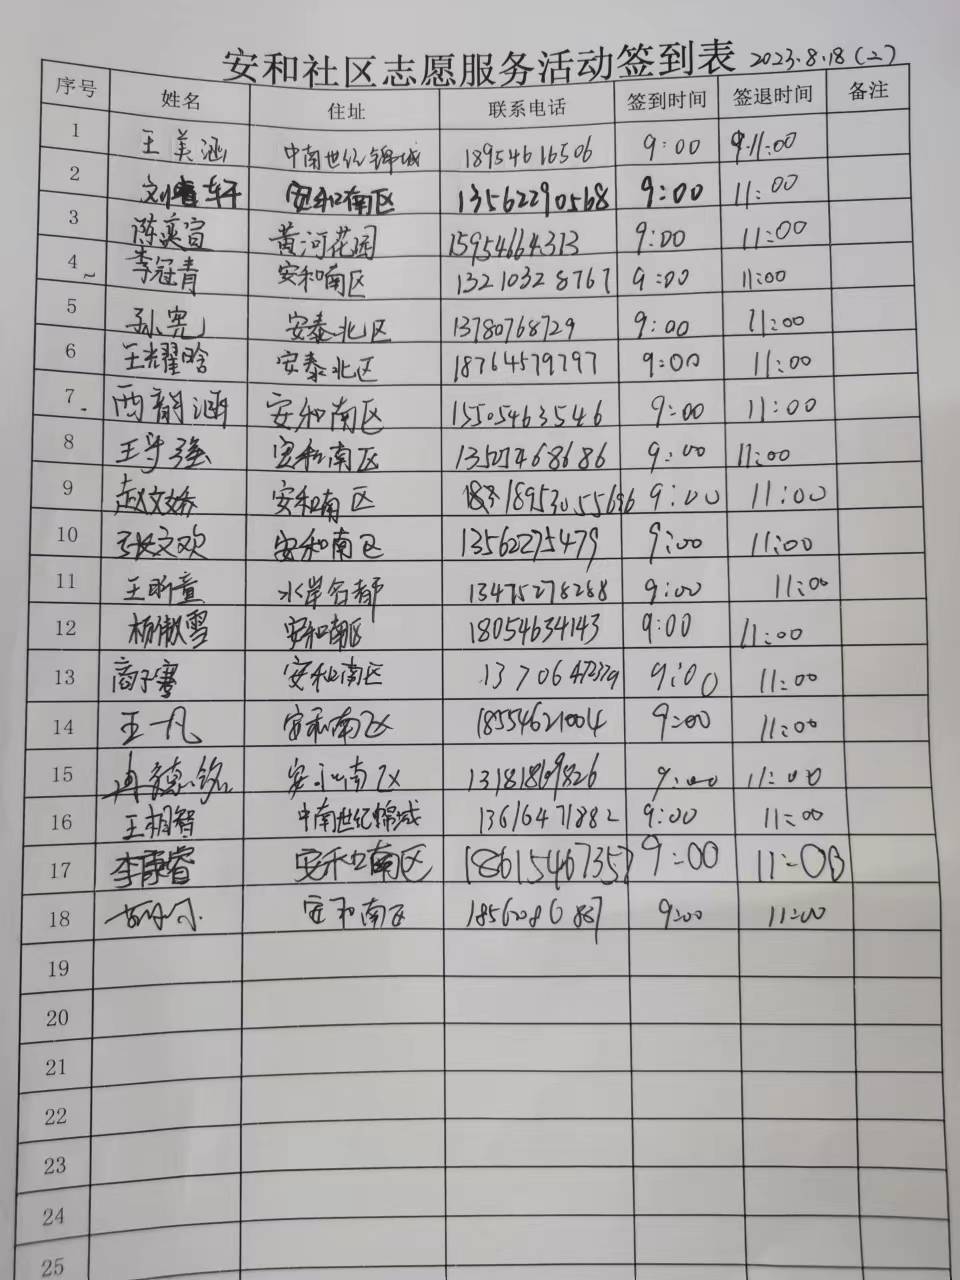 安和社区志愿服务活动签到表 2023.8.18(二)
序号 姓名 住址 联系电话 签到时间 签退时间 备注
1 王美涵 中南世纪锦城 18954616506 9:00 11:00
2 刘睿轩 安和南区 13562290568 9:00 11:00
3 陈奕宣 黄河花园 15954664313 9:00 11:00
4 李冠青 安和南区 13210328767 9:00 11:00
5 孙宪 安泰北区 13780768729 9:00 11:00
6 王耀晗 安泰北区 18764579797 9:00 11:00
7 西韵涵 安和南区 15505463546 9:00 11:00
8 王守强 安和南区 9:00 11:00
9 赵文娇 安和南区 18953055696 9:00 11:00
10 张文欢 安和南区 13562275479 9:00 11:00
11 王昕童 水岸名都 13475278288 9:00 11:00
12 杨傲雪 安和南区 18054634143 9:00 11:00
13 商子骞 安和南区 13706472379 9:00 11:00
14 王一凡 安和南区 18554621004 9:00 11:00
15 冉德铭 安和南区 13181869826 9:00 11:00
16 王相智 中南世纪锦城 13616471882 9:00 11:00
17 李康睿 安和南区 18615467357 9:00 11:00
18 安和南区 18562086887 9:00 11:00
19
20
21
22
23
24
25